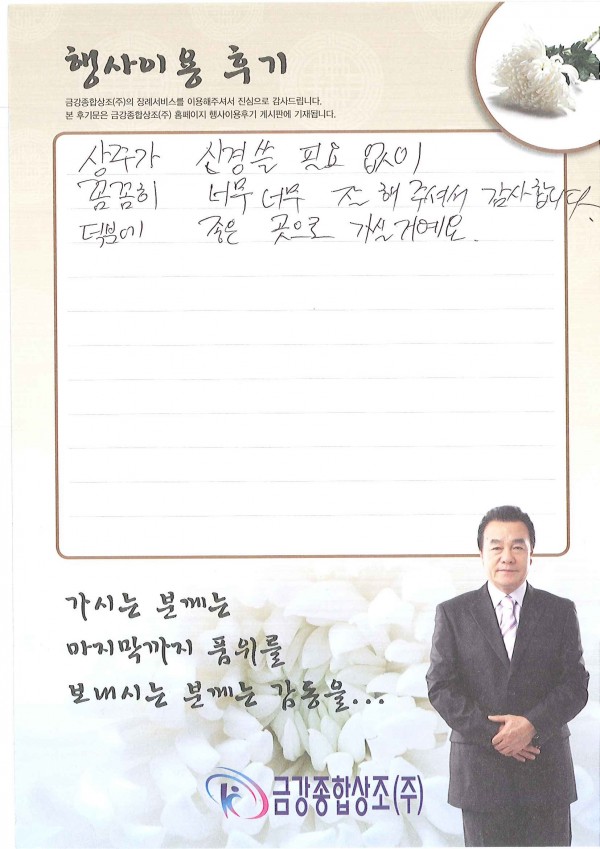 행사이용 후기
금강종합상조(주)의 장례서비스를 이용해주셔서 진심으로 감사드립니다.
본 후기문은 금강종합상조(주) 홈페이지 행사이용후기 게시판에 기재됩니다.
상주가 신경쓸 필요 없이
꼼꼼히 너무너무 잘 해 주셔서 감사합니다.
덕분에 좋은 곳으로 가실거예요.
가시는 분께는
마지막까지 품위를
보내시는 분께는 감동을...
금강종합상조(주)